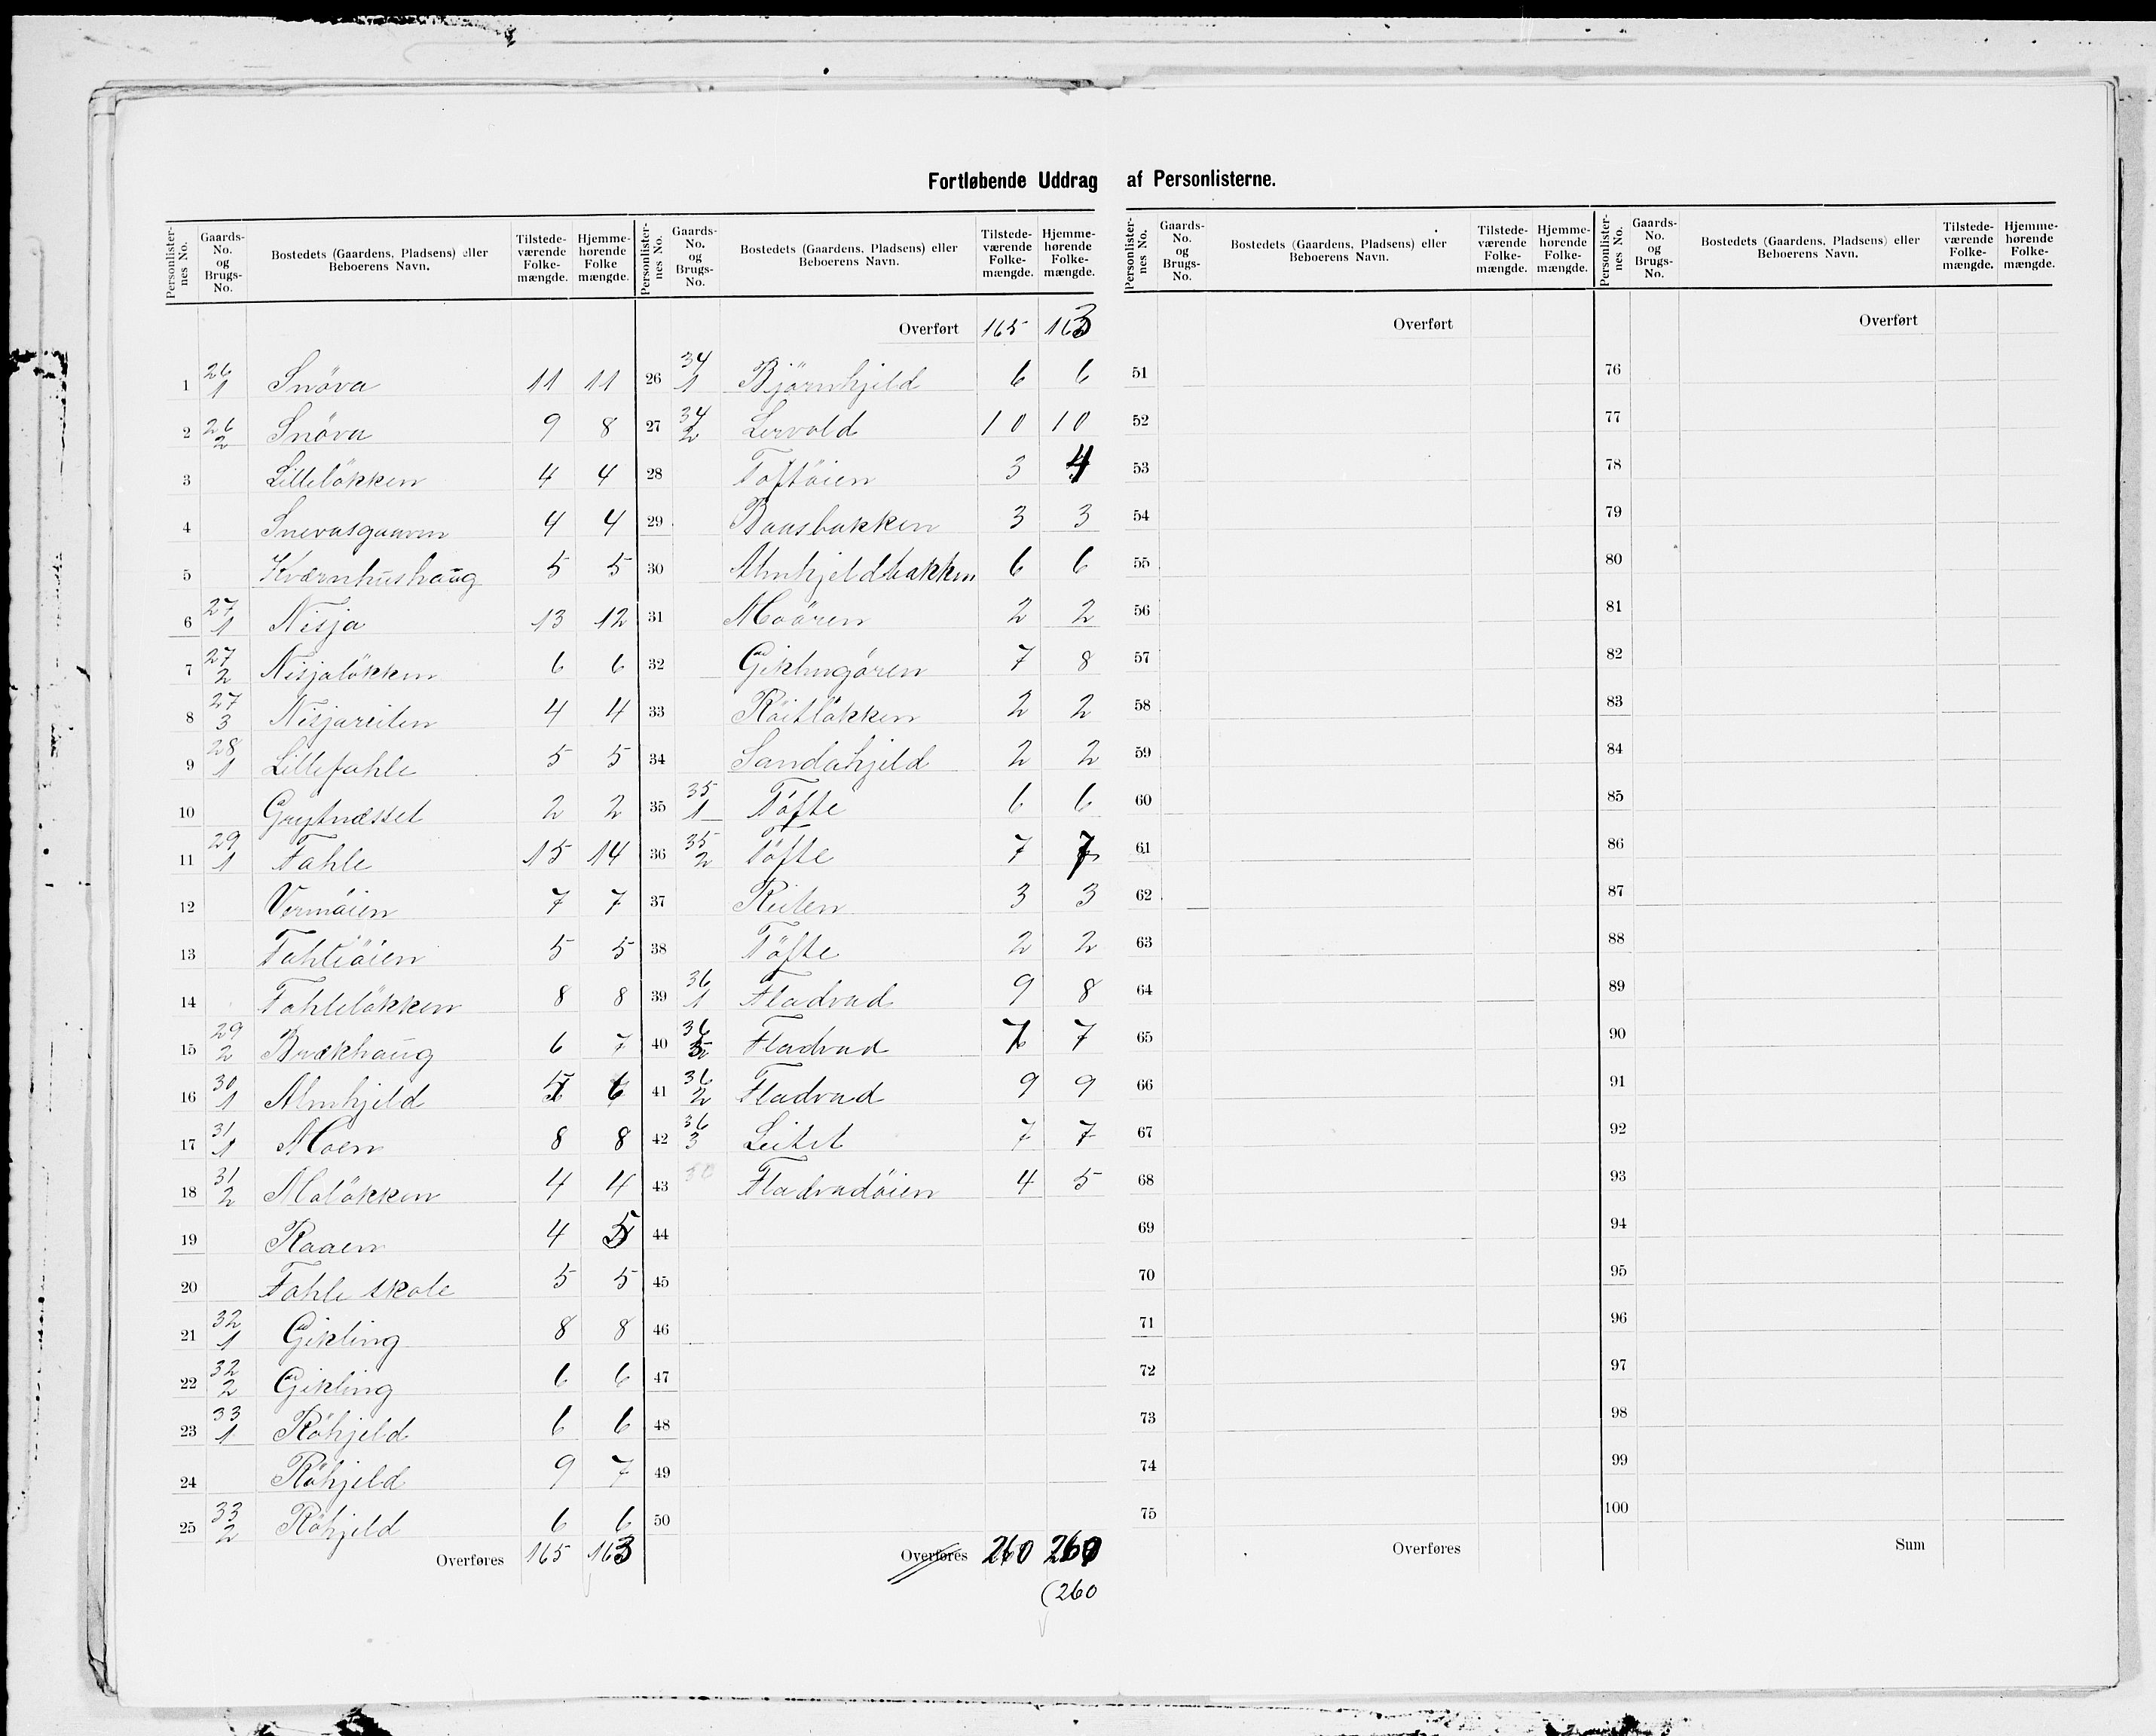 Fortløbende Uddrag af Personlisterne.
Personlister-nes No. Gaards-No. og Brugs-No. Bostedets (Gaardens, Pladsens) eller Beboerens Navn. Tilstede-værende Folke-mængde. Hjemme-hørende Folke mængde.
1 26/1 Snöva 11 11
2 26/2 Snöva 9 8
3 Lilleløkken 4 4
4 Snevasgaaren 4 4
5 Kværnhushaug 5 5
6 27/1 Nisja 13 12
7 27/2 Nisjaløkken 6 6
8 27/3 Nisjareiten 4 4
9 28/1 Lillefahle 5 5
10 Grytnæsset 2 2
11 29/1 Fahle 15 14
12 Vermöien 7 7
13 Fahleöien 5 5
14 Fahleløkken 8 8
15 29/2 Brækhaug 6 7
16 30/1 Almhjeld 5 6
17 31/1 Moen 8 8
18 31/2 Moløkken 4 4
19 Raaen 4 5
20 Fahle skole 5 5
21 32/1 Gikling 8 8
22 32/2 Gikling 6 6
23 33/1 Röhjeld 6 6
24 Röhjeld 9 7
25 33/2 Röhjeld 6 6
Overføres 165 163
Personlister-nes No. Gaards-No. og Brugs-No. Bostedets (Gaardens, Pladsens) eller Beboerens Navn. Tilstede-værende Folke-mængde. Hjemme-hørende Folke-mængde.
Overført 165 163
26 34/1 Björnhjeld 6 6
27 34/2 Lervold 10 10
28 Toftöien 3 4
29 Baasbakken 3 3
30 Almhjeldbakken 6 6
31 Moören 2 2
32 Giklingören 7 8
33 Röitløkken 2 2
34 Sandahjeld 2 2
35 35/1 Töfte 6 6
36 35/2 Töfte 7 7
37 Reiten 3 3
38 Töfte 2 2
39 36/1 Fladvad 9 8
40 36/5 Fladvad 7 7
41 36/2 Fladvad 9 9
42 36/3 Leitet 7 7
43 Fladvadöien 4 5
44
45
46
47
48
49
50
Overføres 260 260
(260
Personlister-nes No. Gaards-No. og Brugs-No. Bostedets (Gaardens, Pladsens) eller Beboerens Navn. Tilstede-værende Folke-mængde. Hjemme-hørende Folke-mængde.
Overført
51
52
53
54
55
56
57
58
59
60
61
62
63
64
65
66
67
68
69
70
71
72
73
74
75
Overføres
Personlister-nes No. Gaards-No. og Brugs-No. Bostedets (Gaardens, Pladsens) eller Beboerens Navn. Tilstede-værende Folke-mængde. Hjemme-hørende Folke-mængde.
Overført
76
77
78
79
80
81
82
83
84
85
86
87
88
89
90
91
92
93
94
95
96
97
98
99
100
Sum